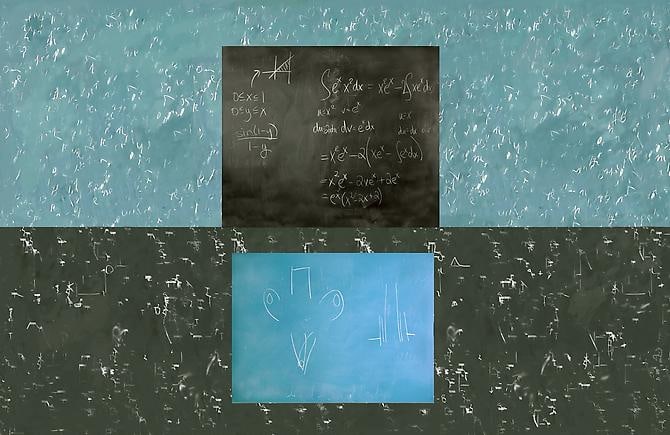 0≤x≤1
0≤y≤x
sin(1-y)
1-y
∫e^x x²dx = xe^x - 2∫xe^xdx
u=x² v=e^x
du=2xdx dv=e^xdx
= x²e^x - 2(xe^x - ∫e^xdx)
= x²e^x - 2xe^x + 2e^x
= e^x(x²-2x+2)